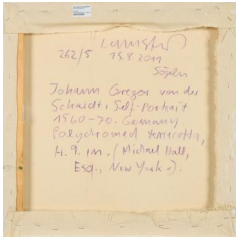 262/5 15.8.2011
Johann Gregor von der
Schardt, Self-Portrait
1560-70. Germany
Polychromed terracotta,
H. 9. in. (Michael Hall,
Esq., New York).